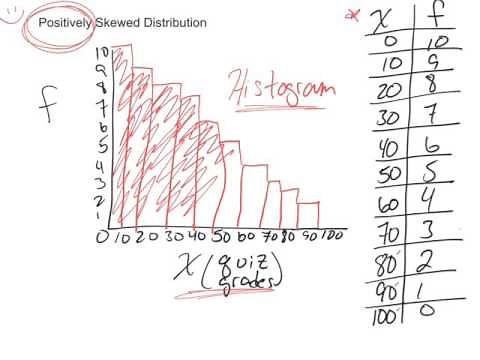 Positively Skewed Distribution
Histogram
f
10
9
8
7
6
5
4
3
2
1
0 10 20 30 40 50 60 70 80 90 100
X (quiz grades)
* X f
0 10
10 9
20 8
30 7
40 6
50 5
60 4
70 3
80 2
90 1
100 0